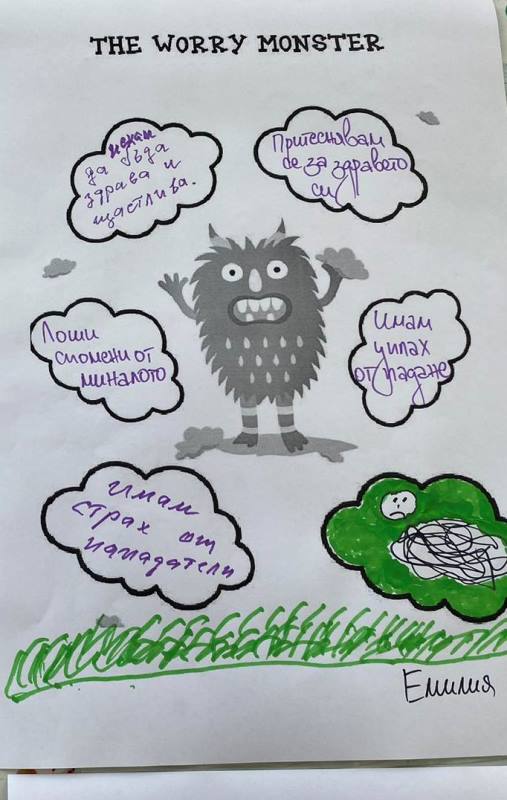 THE WORRY MONSTER
искам
да бъда
здрава и
щастлива.
Притеснявам
се за здравето
си
Лоши
спомени от
миналото
Имам
уплах
от падане
Имам
страх от
нападатели
Емилия